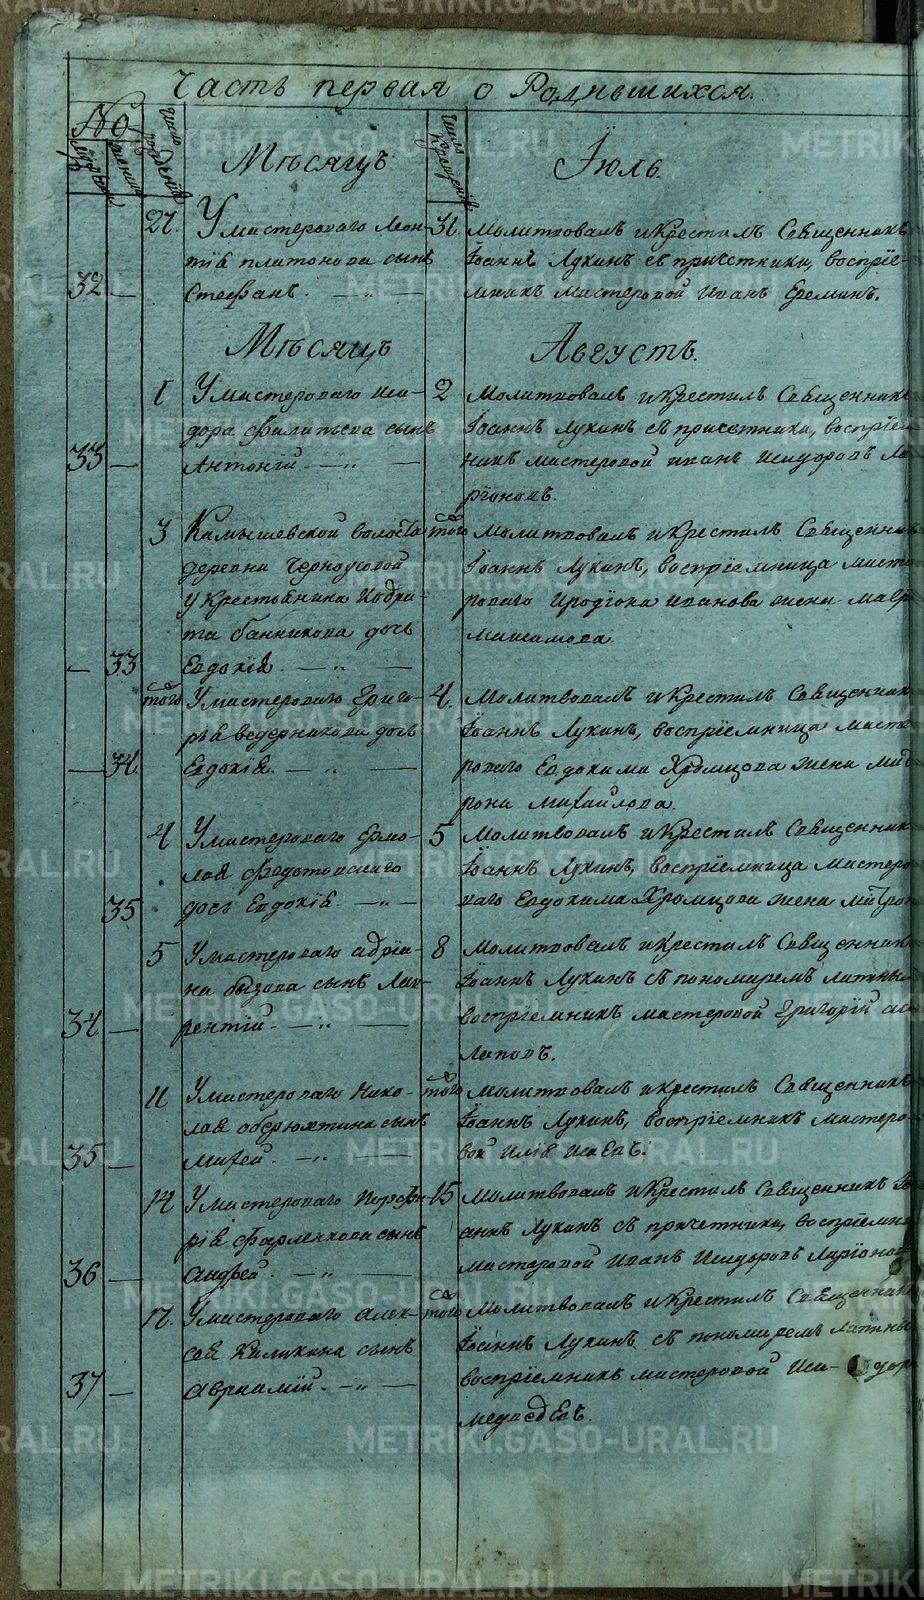 Часть первая о Родившихся.
No
Число рождения
Число крещения
Мѣсяцъ Іюль.
27. У мастероваго Леон-
тія платонова сынъ
32 — Стефанъ. — „ —
31. Молитвовалъ и крестилъ Священникъ
Іоаннъ Лукинъ съ причетники, воспріе-
мникъ мастеровой Иванъ Ереминъ.
Мѣсяцъ Августъ.
1 У мастероваго Иси-
дора Филипьева сынъ
33 — Антоній — „ —
2 Молитвовалъ и крестилъ Священникъ
Іоаннъ Лукинъ съ причетники, воспріем
никъ мастеровой иванъ Исидоровъ Ла
ріоновъ.
3 Камышевской волости
деревни Черноусовой
у крестьянина Кодра-
та банникова дочь
— 33 Евдокія. — „ —
того Молитвовалъ и крестилъ Священник
Іоаннъ Лукинъ, воспріемница масте
роваго Иродіона иванова жена мавра
Максимова.
того У мастероваго Григо-
рья ведерникова дочь
— 34. Евдокія. — „ —
4. Молитвовалъ и крестилъ Священник
Іоаннъ Лукинъ, воспріемница масте
роваго Евдокима Хромцова жена мат
рона михайлова.
4 У мастероваго Ермо-
лая Федотовскаго
35 дочь Евдокія. — „ —
5 Молитвовалъ и крестилъ Священник
Іоаннъ Лукинъ, воспріемница мастеро
ваго Евдокима Хромцова жена матрон
5 У мастероваго адріа-
на бызова сынъ Лав-
34 — рентій. — „ —
8 Молитвовалъ и крестилъ Священник
Іоаннъ Лукинъ съ пономаремъ
воспріемникъ мастеровой Григорій
лаповъ.
11 У мастероваго Нико-
лая оберюхтина сынъ
35 — михей. — „ —
того Молитвовалъ и крестилъ Священникъ
Іоаннъ Лукинъ, воспріемникъ мастеро
вой илія исаевъ.
14 У мастероваго Порфи-
рія Фарленкова сынъ
36 — андрей. — „ —
15 Молитвовалъ и крестилъ Священникъ Іо
аннъ Лукинъ съ причетники, воспріемни
мастеровой Иванъ Исидоровъ Ларіонов
17. У мастероваго Алек-
сея Калукина сынъ
37 — авраамій. — „ —
того Молитвовалъ и крестилъ Священник
Іоаннъ Лукинъ съ пономаремъ
воспріемникъ мастеровой Иси- дор
медведевъ.
METRIKI.GASO-URAL.RU